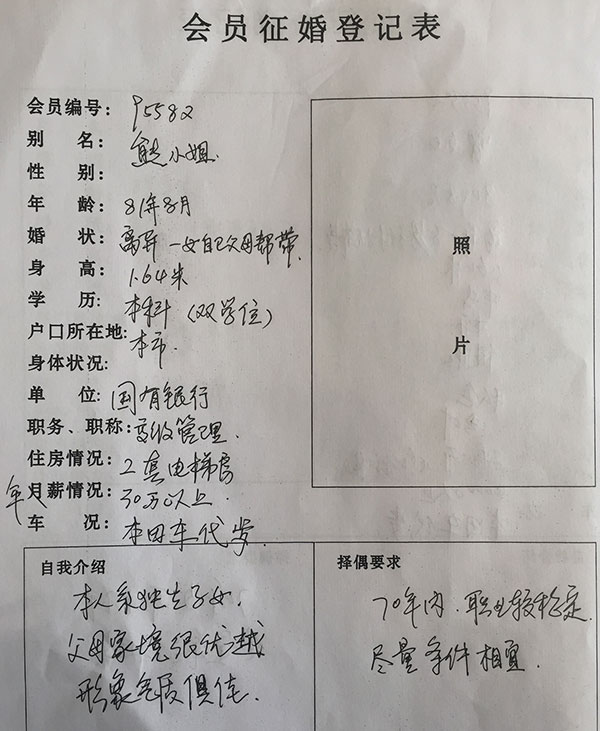 会员征婚登记表
会员编号: 95582
别 名: 熊小姐.
性 别:
年 龄: 81年8月
婚 状: 离异 一女自己父母帮带.
身 高: 1.64米
学 历: 本科 (双学位)
户口所在地: 本市.
身体状况:
单 位: 国有银行
职务、职称: 高级管理.
住房情况: 2套电梯房
年入
月薪情况: 30万以上.
车 况: 本田车代步.
照
片
自我介绍
本人系独生子女.
父母家境很优越
形象气质俱佳.
择偶要求
70年内.职业较稳定.
尽量条件相宜.